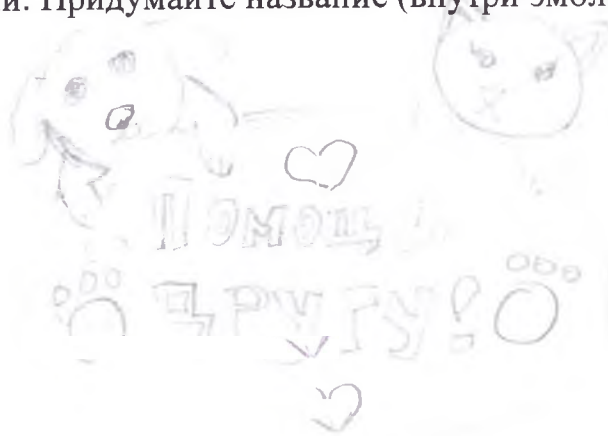 и. Придумайте название (внутри эмол
Помощь
другу!